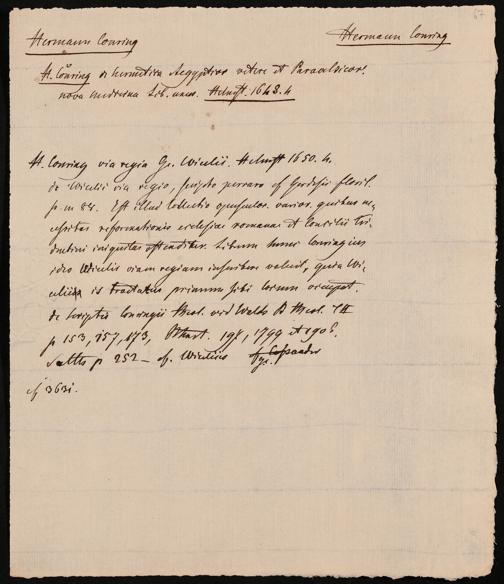 67
Hermann Conring Hermann Conring
H. Conring de hermetica Aegyptior. vetere et Paracelsicor.
nova medicina Lib. unus. Helmst. 1648. 4
H. Conring via regia G. Wicelii. Helmst 1650. 4.
de Wicelii via regia, scripto perraro cf Gerdesii floril.
p m 84. Est illud collectio opusculor. varior. quibus ne-
cessitas reformationis ecclesiae romanae et Concilii Tri-
dentini iniquitas ostenditur. Librum hunc Conringius
ideo Wicelii viam regiam inscribere voluit, quia Wi-
celii is tractatus primum sibi locum occupat.
de scriptis Conringii theol. vid Walch B theol. T II
p 153, 157, 173, 198, 1799 et 1908.
p 252 – cf. Wicelius Cassander
cf 363i.